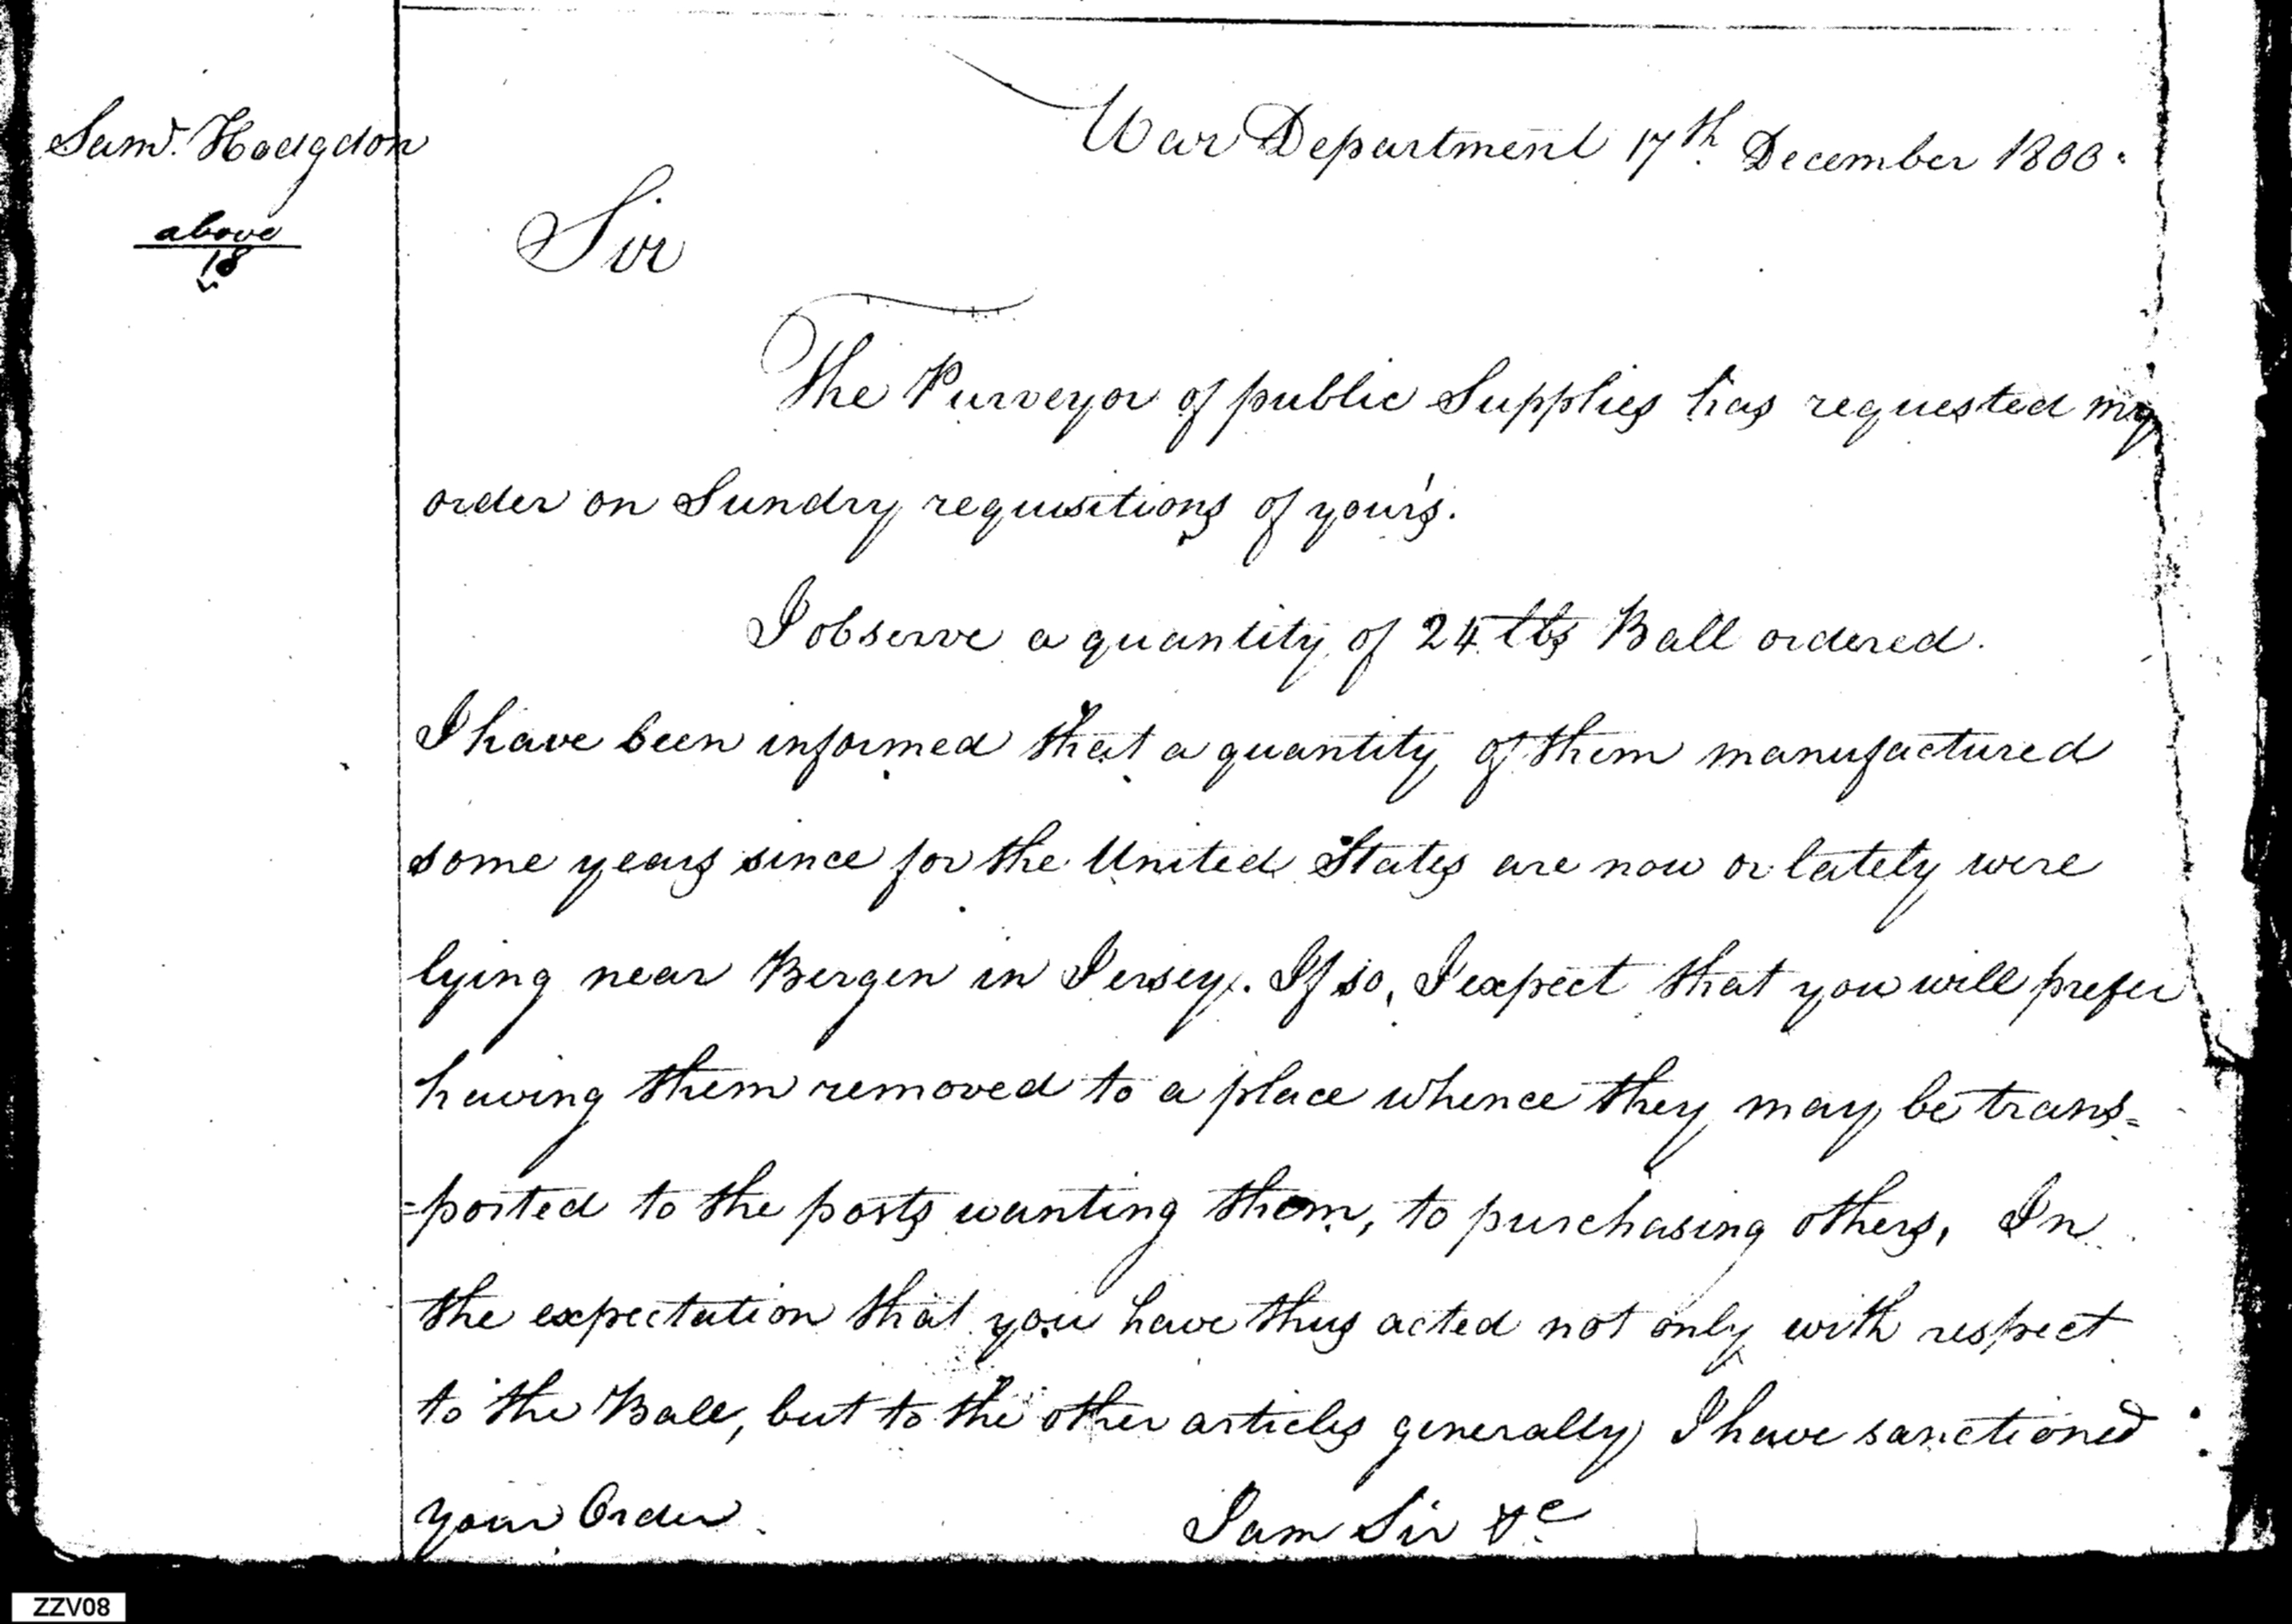 Saml. Hodgdon
above
18
War Department 17th December 1800.
Sir
The Purveyor of public Supplies has requested my
order on Sundry requisitions of your's.
I observe a quantity of 24 lbs Ball ordered.
I have been informed that a quantity of them manufactured
some years since for the United States are now or lately were
lying near Bergen in Jersey. If so, I expect that you will prefer
having them removed to a place whence they may be trans=
=ported to the posts wanting them, to purchasing others, In
the expectation that you have thus acted not only with respect
to the Ball, but to the other articles generally I have sanctioned
your Order.
I am Sir &c
ZZV08